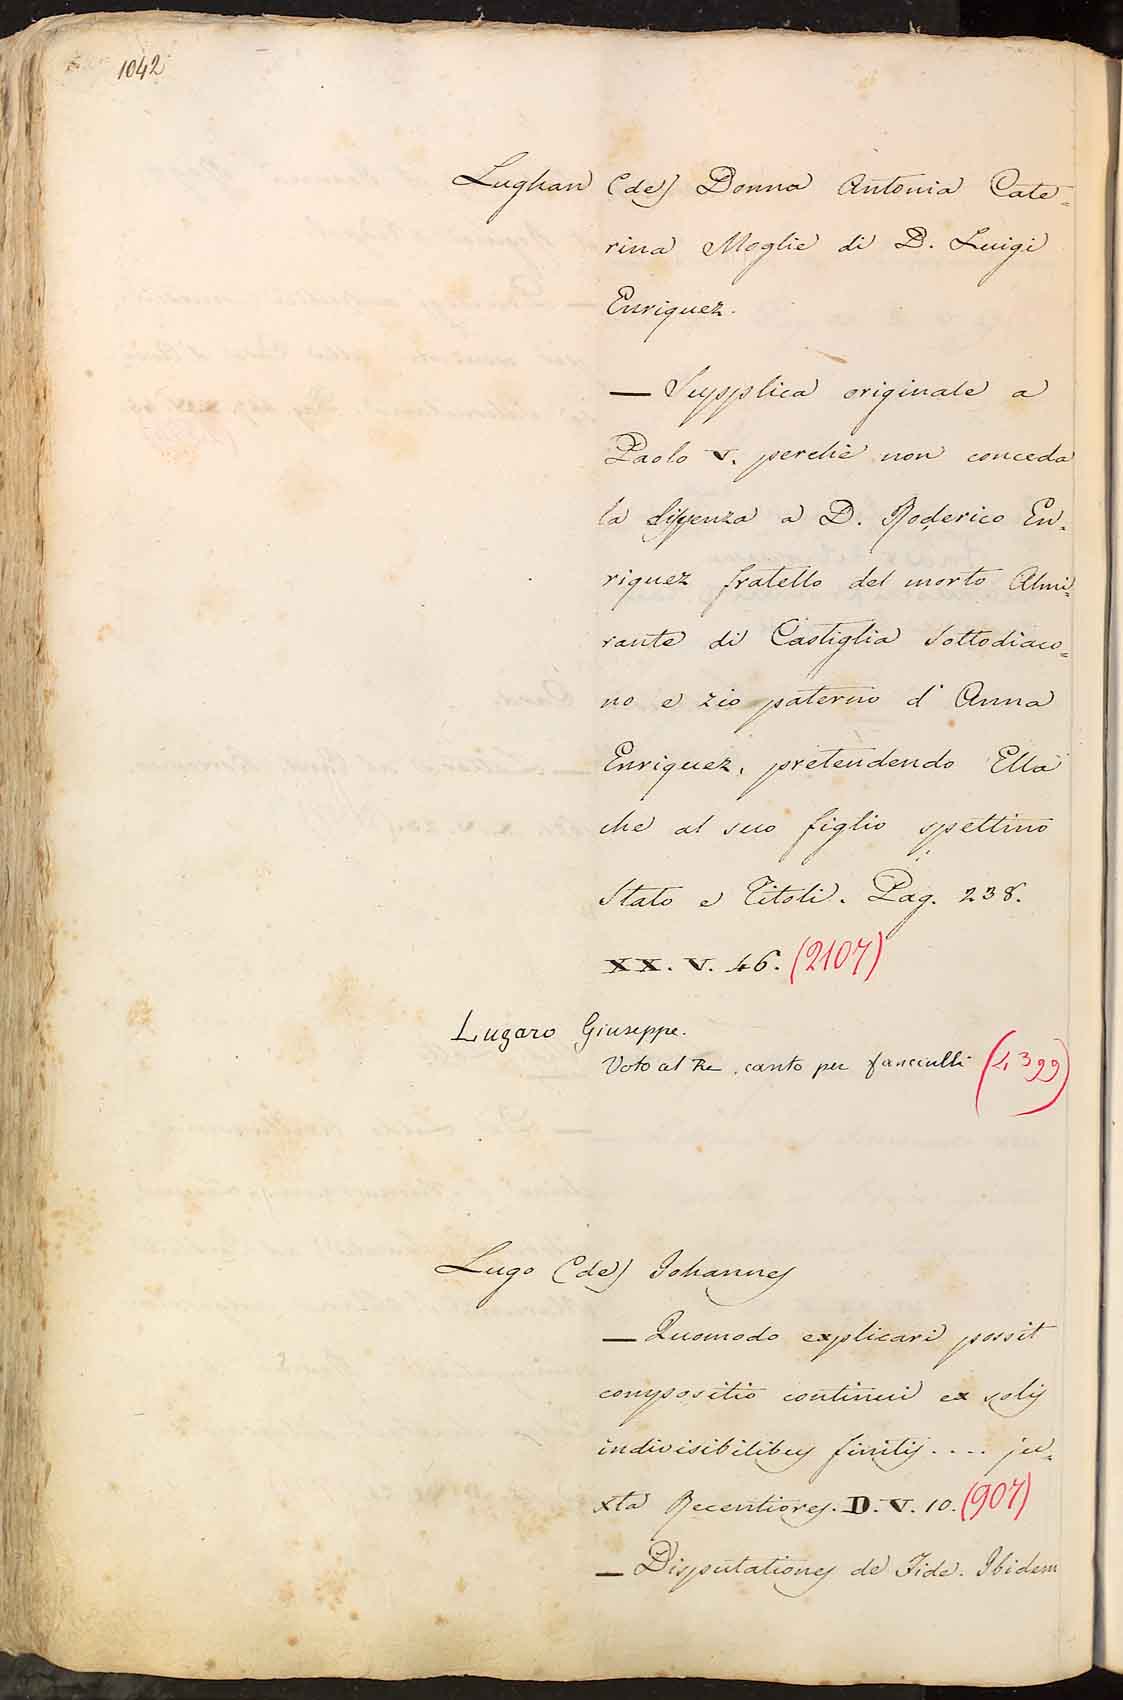 1042
Lughan (de) Donna Antonia Cate=
rina Moglie di D. Luigi
Enriquez.
— Supplica originale a
Paolo V. perchè non conceda
la dispenza a D. Roderico En=
riquez fratello del morto Almi=
rante di Castiglia Sottodiaco=
no e zio paterno d'Anna
Enriquez, pretendendo Ella
che al suo figlio spettino
Stato e Titoli. Pag. 238.
XX. V. 46. (2107)
Lugaro Giuseppe.
Voto al Re, canto per fanciulli (4399)
Lugo (de) Johannes
— Quomodo explicari possit
compositio continui ex solis
indivisibilibus finitis .... ju=
xta Recentiores. D. V. 10. (907)
— Disputationes de Fide. Ibidem